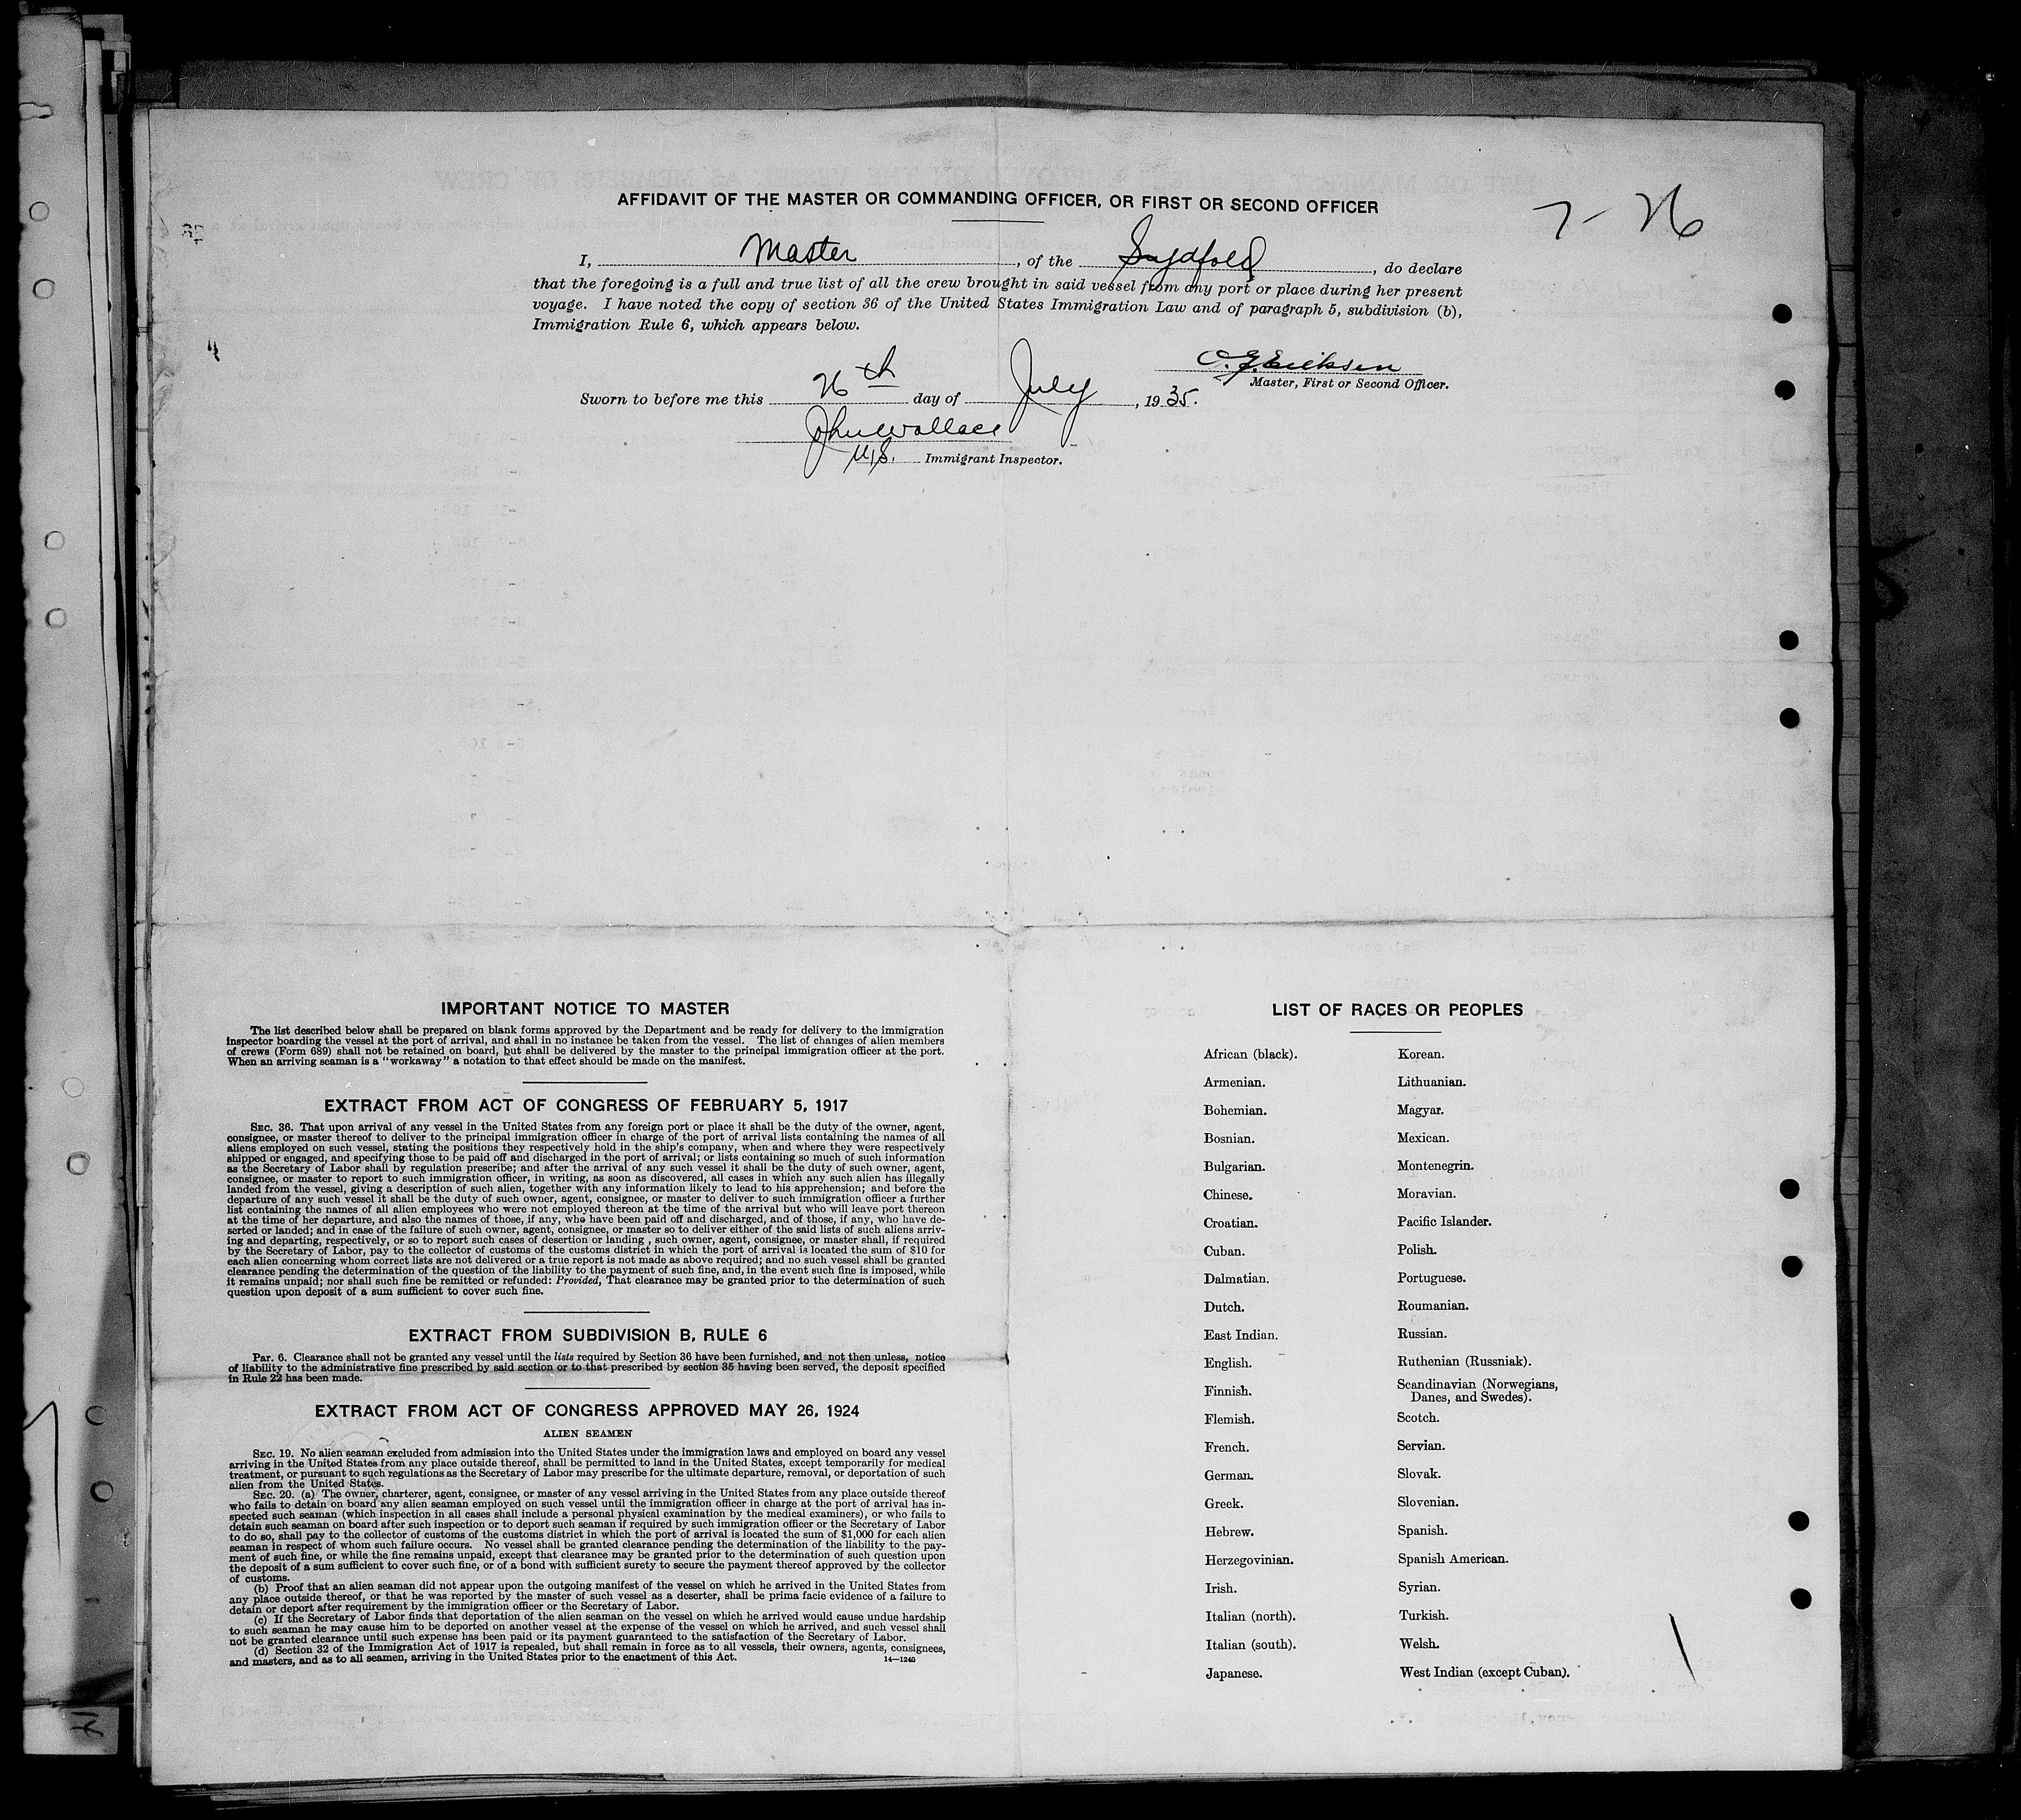 AFFIDAVIT OF THE MASTER OR COMMANDING OFFICER, OR FIRST OR SECOND OFFICER
7- 26
I, Master, of the, do declare
that the foregoing is a full and true list of all the crew brought in said vessel from any port or place during her present
voyage. I have noted the copy of section 36 of the United States Immigration Law and of paragraph 5, subdivision (b),
Immigration Rule 6, which appears below.
Master, First or Second Officer.
Sworn to before me this 26th day of July, 1935.
John Wallace
Immigrant Inspector.
IMPORTANT NOTICE TO MASTER
The list described below shall be prepared on blank forms approved by the Department and be ready for delivery to the immigration
inspector boarding the vessel at the port of arrival, and shall in no instance be taken from the vessel. The list of changes of alien members
of crews (Form 689) shall not be retained on board, but shall be delivered by the master to the principal immigration officer at the port.
When an arriving seaman is a "workaway" a notation to that effect should be made on the manifest.
EXTRACT FROM ACT OF CONGRESS OF FEBRUARY 5, 1917
SEC. 36. That upon arrival of any vessel in the United States from any foreign port or place it shall be the duty of the owner, agent,
consignee, or master thereof to deliver to the principal immigration officer in charge of the port of arrival lists containing the names of all
aliens employed on such vessel, stating the positions they respectively hold in the ship's company, when and where they were respectively
shipped or engaged, and specifying those to be paid off and discharged in the port of arrival; or lists containing so much of such information
as the Secretary of Labor shall by regulation prescribe; and after the arrival of any such vessel it shall be the duty of such owner, agent,
consignee, or master to report to such immigration officer, in writing, as soon as discovered, all cases in which any such alien has illegally
landed from the vessel, giving a description of such alien, together with any information likely to lead to his apprehension; and before the
departure of any such vessel it shall be the duty of such owner, agent, consignee, or master to deliver to such immigration officer a further
list containing the names of all alien employees who were not employed thereon at the time of the arrival but who will leave port thereon
at the time of her departure, and also the names of those, if any, who have been paid off and discharged, and of those, if any, who have de-
serted or landed; and in case of the failure of such owner, agent, consignee, or master so to deliver either of the said lists of such aliens arriv-
ing and departing, respectively, or so to report such cases of desertion or landing , such owner, agent, consignee, or master shall, if required
by the Secretary of Labor, pay to the collector of customs of the customs district in which the port of arrival is located the sum of $10 for
each alien concerning whom correct lists are not delivered or a true report is not made as above required; and no such vessel shall be granted
clearance pending the determination of the question of the liability to the payment of such fine, and, in the event such fine is imposed, while
it remains unpaid; nor shall such fine be remitted or refunded: Provided, That clearance may be granted prior to the determination of such
question upon deposit of a sum sufficient to cover such fine.
EXTRACT FROM SUBDIVISION B, RULE 6
Par. 6. Clearance shall not be granted any vessel until the lists required by Section 36 have been furnished, and not then unless, notice
of liability to the administrative fine prescribed by said section or to that prescribed by section 35 having been served, the deposit specified
in Rule 22 has been made.
EXTRACT FROM ACT OF CONGRESS APPROVED MAY 26, 1924
ALIEN SEAMEN
SEC. 19. No alien seaman excluded from admission into the United States under the immigration laws and employed on board any vessel
arriving in the United States from any place outside thereof, shall be permitted to land in the United States, except temporarily for medical
treatment, or pursuant to such regulations as the Secretary of Labor may prescribe for the ultimate departure, removal, or deportation of such
alien from the United States.
SEC. 20. (a) The owner, charterer, agent, consignee, or master of any vessel arriving in the United States from any place outside thereof
who fails to detain on board any alien seaman employed on such vessel until the immigration officer in charge at the port of arrival has in-
spected such seaman (which inspection in all cases shall include a personal physical examination by the medical examiners), or who fails to
detain such seaman on board after such inspection or to deport such seaman if required by such immigration officer or the Secretary of Labor
to do so, shall pay to the collector of customs of the customs district in which the port of arrival is located the sum of $1,000 for each alien
seaman in respect of whom such failure occurs. No vessel shall be granted clearance pending the determination of the liability to the pay-
ment of such fine, or while the fine remains unpaid, except that clearance may be granted prior to the determination of such question upon
the deposit of a sum sufficient to cover such fine, or of a bond with sufficient surety to secure the payment thereof approved by the collector
of customs.
(b) Proof that an alien seaman did not appear upon the outgoing manifest of the vessel on which he arrived in the United States from
any place outside thereof, or that he was reported by the master of such vessel as a deserter, shall be prima facie evidence of a failure to
detain or deport after requirement by the immigration officer or the Secretary of Labor.
(c) If the Secretary of Labor finds that deportation of the alien seaman on the vessel on which he arrived would cause undue hardship
to such seaman he may cause him to be deported on another vessel at the expense of the vessel on which he arrived, and such vessel shall
not be granted clearance until such expense has been paid or its payment guaranteed to the satisfaction of the Secretary of Labor.
(d) Section 32 of the Immigration Act of 1917 is repealed, but shall remain in force as to all vessels, their owners, agents, consignees,
and masters, and as to all seamen, arriving in the United States prior to the enactment of this Act.
14—1240
LIST OF RACES OR PEOPLES
African (black).
Armenian.
Bohemian.
Bosnian.
Bulgarian.
Chinese.
Croatian.
Cuban.
Dalmatian.
Dutch.
East Indian.
English.
Finnish.
Flemish.
French.
German.
Greek.
Hebrew.
Herzegovinian.
Irish.
Italian (north).
Italian (south).
Japanese.
Korean.
Lithuanian.
Magyar.
Mexican.
Montenegrin.
Moravian.
Pacific Islander.
Polish.
Portuguese.
Roumanian.
Russian.
Ruthenian (Russniak).
Scandinavian (Norwegians,
Danes, and Swedes).
Scotch.
Servian.
Slovak.
Slovenian.
Spanish.
Spanish American.
Syrian.
Turkish.
Welsh.
West Indian (except Cuban).